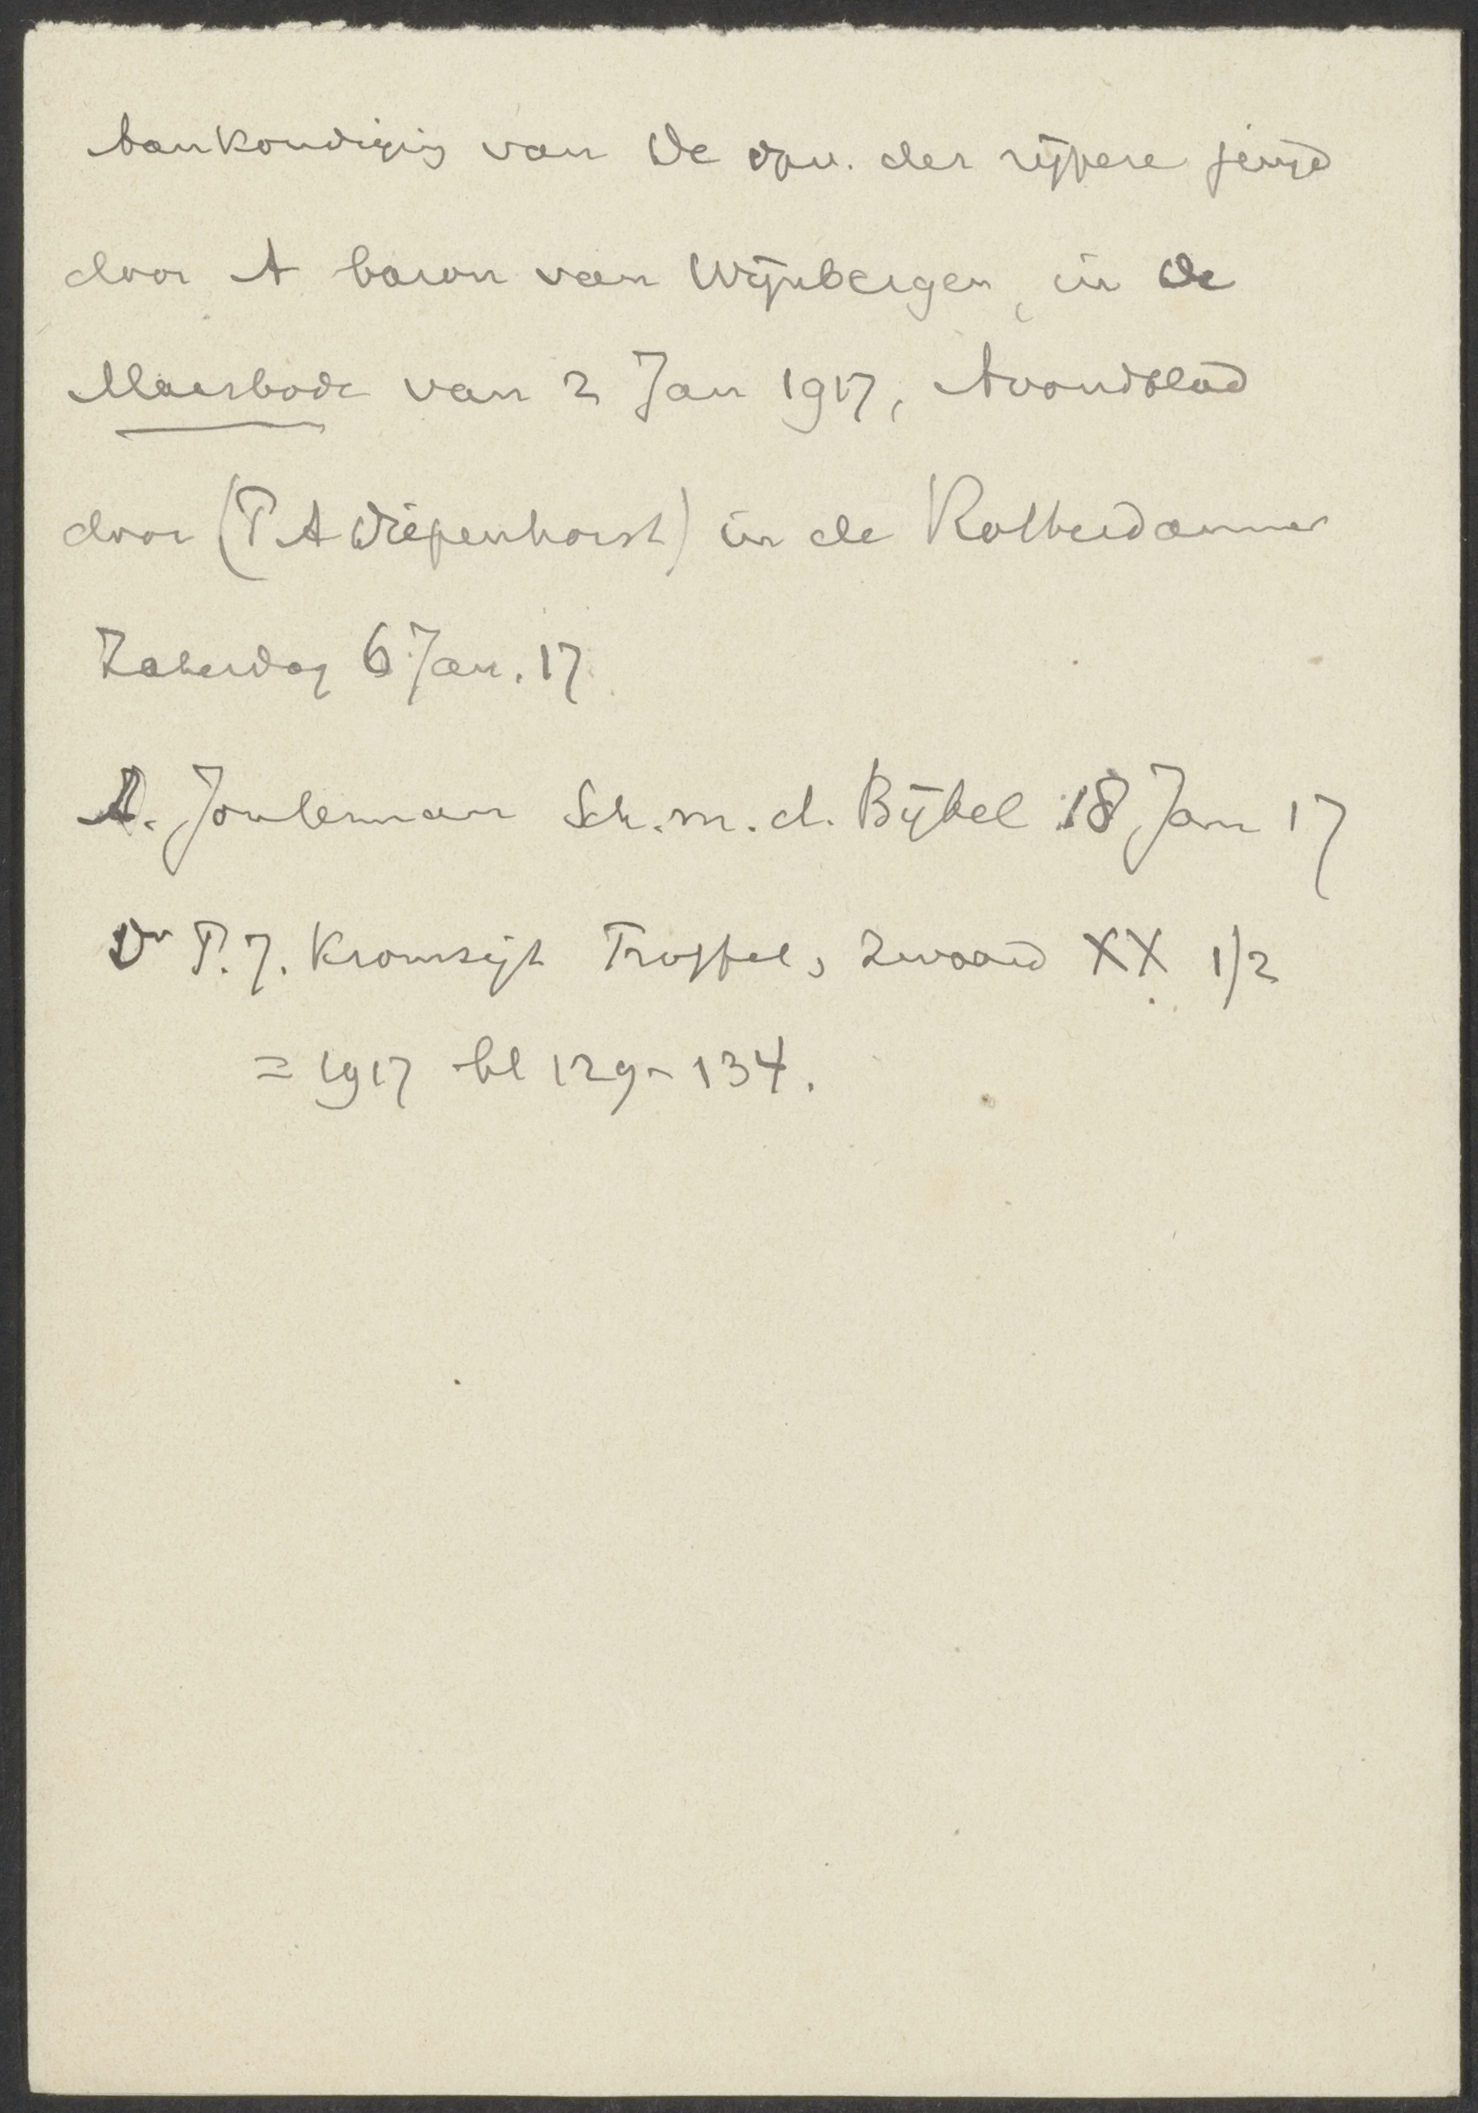 Aankondiging van De opv. der rijpere jeugd
door A baron van Wijnbergen, in De
Maasbode van 2 Jan 1917, Avondblad
door (P A Diepenhorst) in de Rotterdammer
Zaterdag 6 Jan. 17
A. Jonkman Sch. m. d. Bijbel 18 Jan 17
Dr P. J. Kromsigt Troffel, Zwaard XX 1/2
= 1917 bl 129-134.